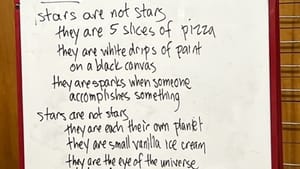 stars are not stars
they are 5 slices of pizza
they are white drips of paint
on a black canvas
they are sparks when someone
accomplishes something
stars are not stars
they are each their own planet
they are small vanilla ice cream
they are the eye of the universe